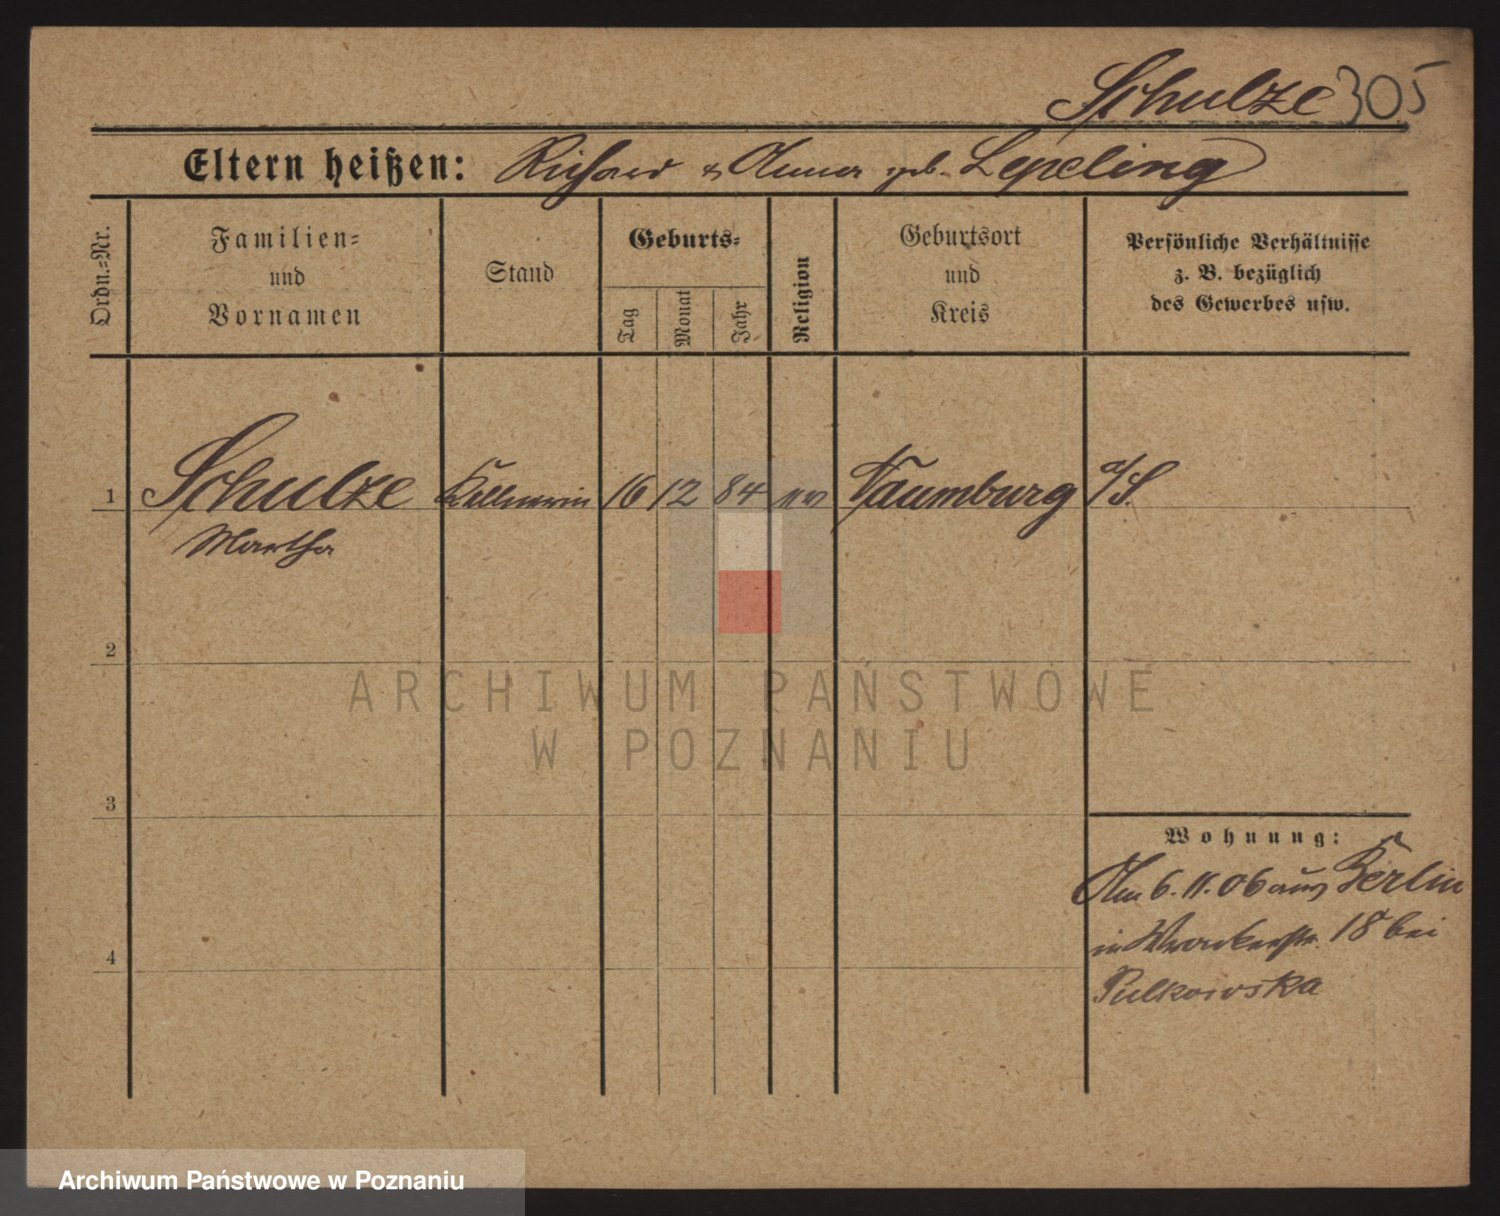 Schulze 305
Eltern heißen: Richard u Anna geb. Lepeling
Ordn.-Nr.
Familien-
und
Vornamen
Stand
Geburts-
Tag
Monat
Jahr
Religion
Geburtsort
und
Kreis
Persönliche Verhältnisse
z. B. bezüglich
des Gewerbes usw.
1 Schulze Kellnerin 16 12 84 ev Naumburg a/S.
Martha
2
ARCHIWUM PAŃSTWOWE
W POZNANIU
3
Wohnung:
Am 6.11.06 aus Berlin
in 18 bei
Pulkowska
4
Archiwum Państwowe w Poznaniu